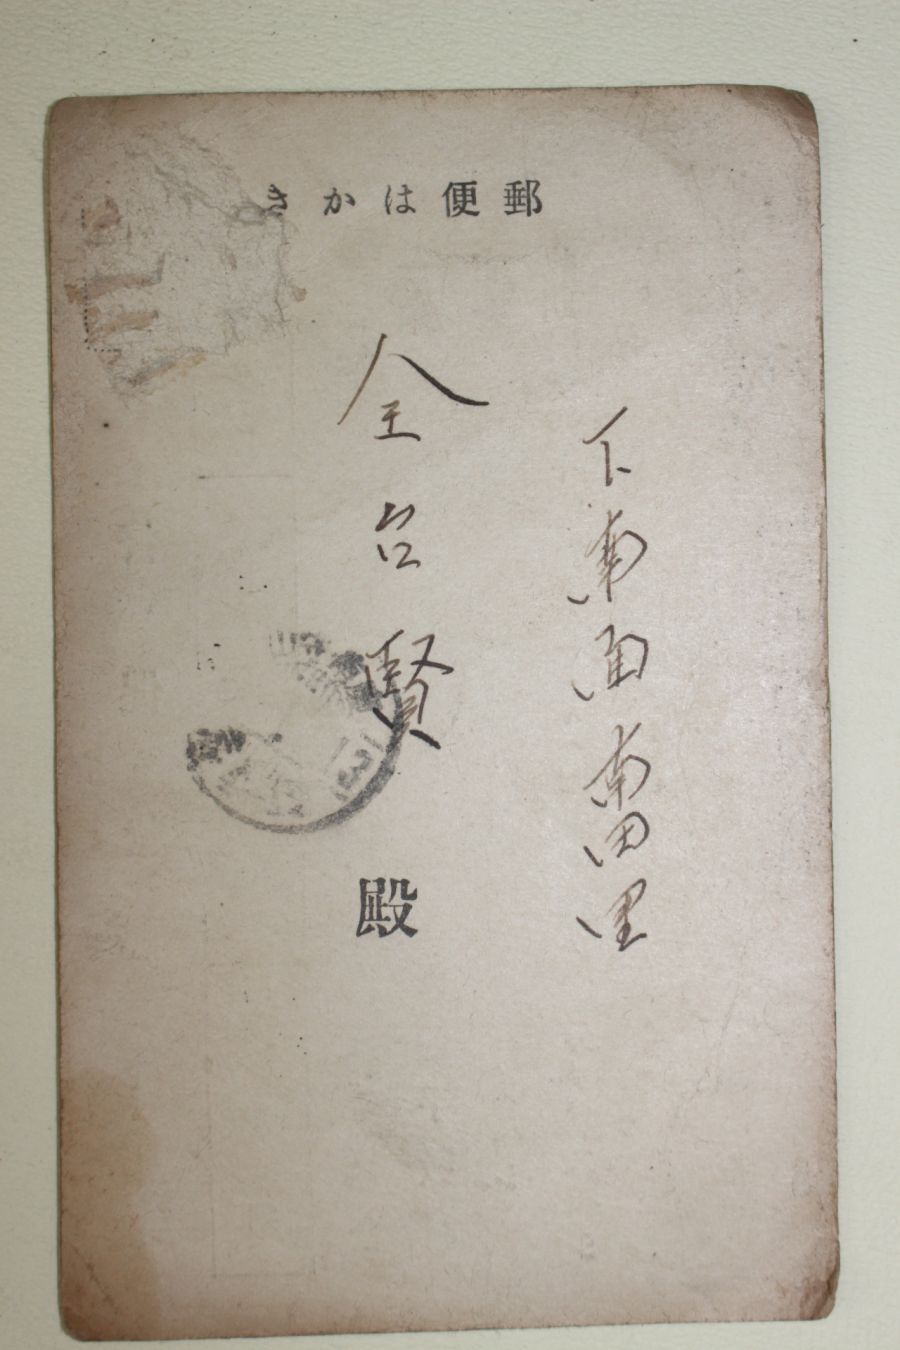 郵便はかき
下南面南田里
全台賢
殿